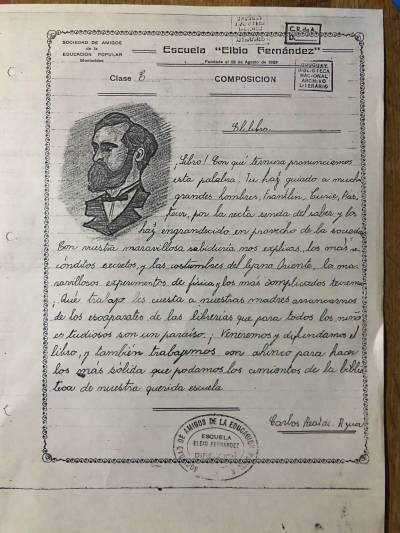 SOCIEDAD DE AMIGOS
de la
EDUCACION POPULAR
Montevideo
Escuela "Elbio Fernández"
Fundada el 29 de Agosto de 1869
C.R. de A.
URUGUAY
BIBLIOTECA
NACIONAL
ARCHIVO
LITERARIO
Clase 6
COMPOSICION
El libro.
¡Libro! Con qué ternura pronunciamos
esta palabra. Tu haz guiado a mucho
grandes hombres, Franklin, Curie, Pas
teur, por la recta senda del saber y los
haz engrandecido en provecho de la sociedad
Con vuestra maravillosa sabiduría nos explicas, los más re
cónditos secretos, y las costumbres del lejano Oriente, los ma
ravillosos experimentos de física y los más complicados
¡Qué trabajo les cuesta a nuestras madres arrancarnos
de los escaparates de las librerías que para todos los niños
estudiosos son un paraíso. ¡Veneremos y difundamos el
libro, y también trabajemos con ahinco para hacer
los más sólida que podamos los cimientos de la biblio
teca de nuestra querida escuela.
Carlos Real de Azúa
SOCIEDAD DE AMIGOS DE LA EDUCACION
ESCUELA
ELBIO FERNANDEZ